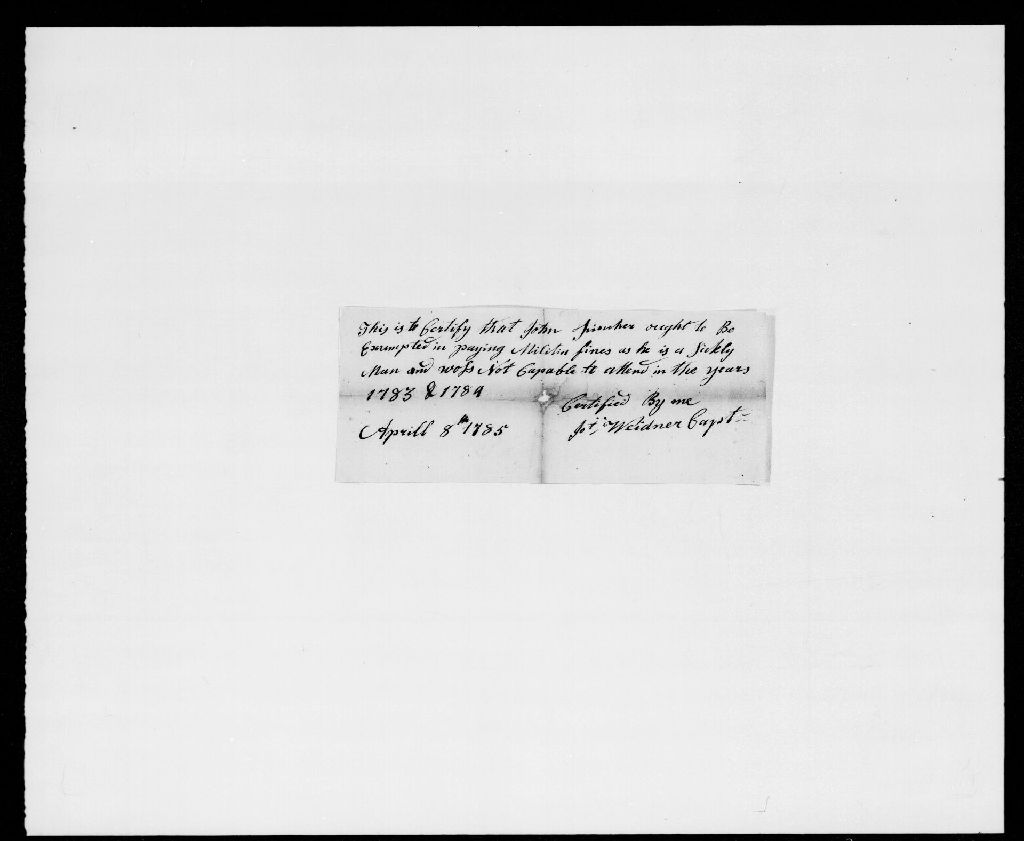 This is to Certify that John ought to Be
Exempted in paying Militia fines as he is a Sickly
Man and woss Not Capable to attend in the years
1783 & 1784
Certified By me
Aprill 8th 1785
Weidner Capt